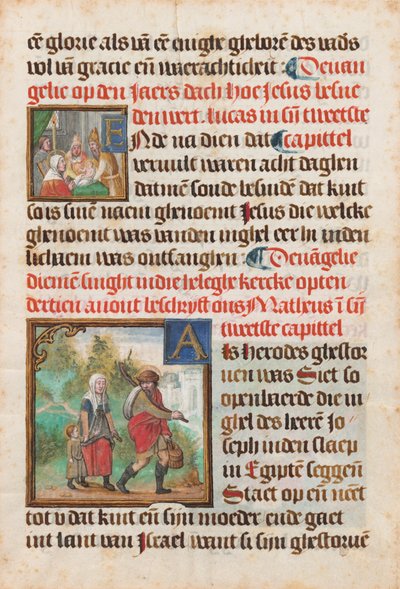 eē glorie als vā eē enighe ghelorē des vad's
vol vā gracie eñ waerachticheit Devan
gelie op den Jaers dach hoe Jesus besne
den wert. Lucas in sijn tweetste
Ende na dien dat Capittel
vervult waren acht daghen
datmē soude besnidē dat kint
so is sinē naem ghenoemt Jesus die welcke
ghenoemt was vanden inghel eer hi inden
lichaem was ontfanghen Devāgelie
diemē singht indie heleghe kercke opten
dertien avont bescryft ons Matheus ī sijn
tweetste capittel
Als herodes ghestor
ven was Siet so
openbaerde die in
ghel des heerē Jo
seph inden slaep
in Egiptē seggen
Staet op eñ neēt
tot v dat kint eñ sijn moeder ende gaet
int lant van Israel want si sijn ghestorvē